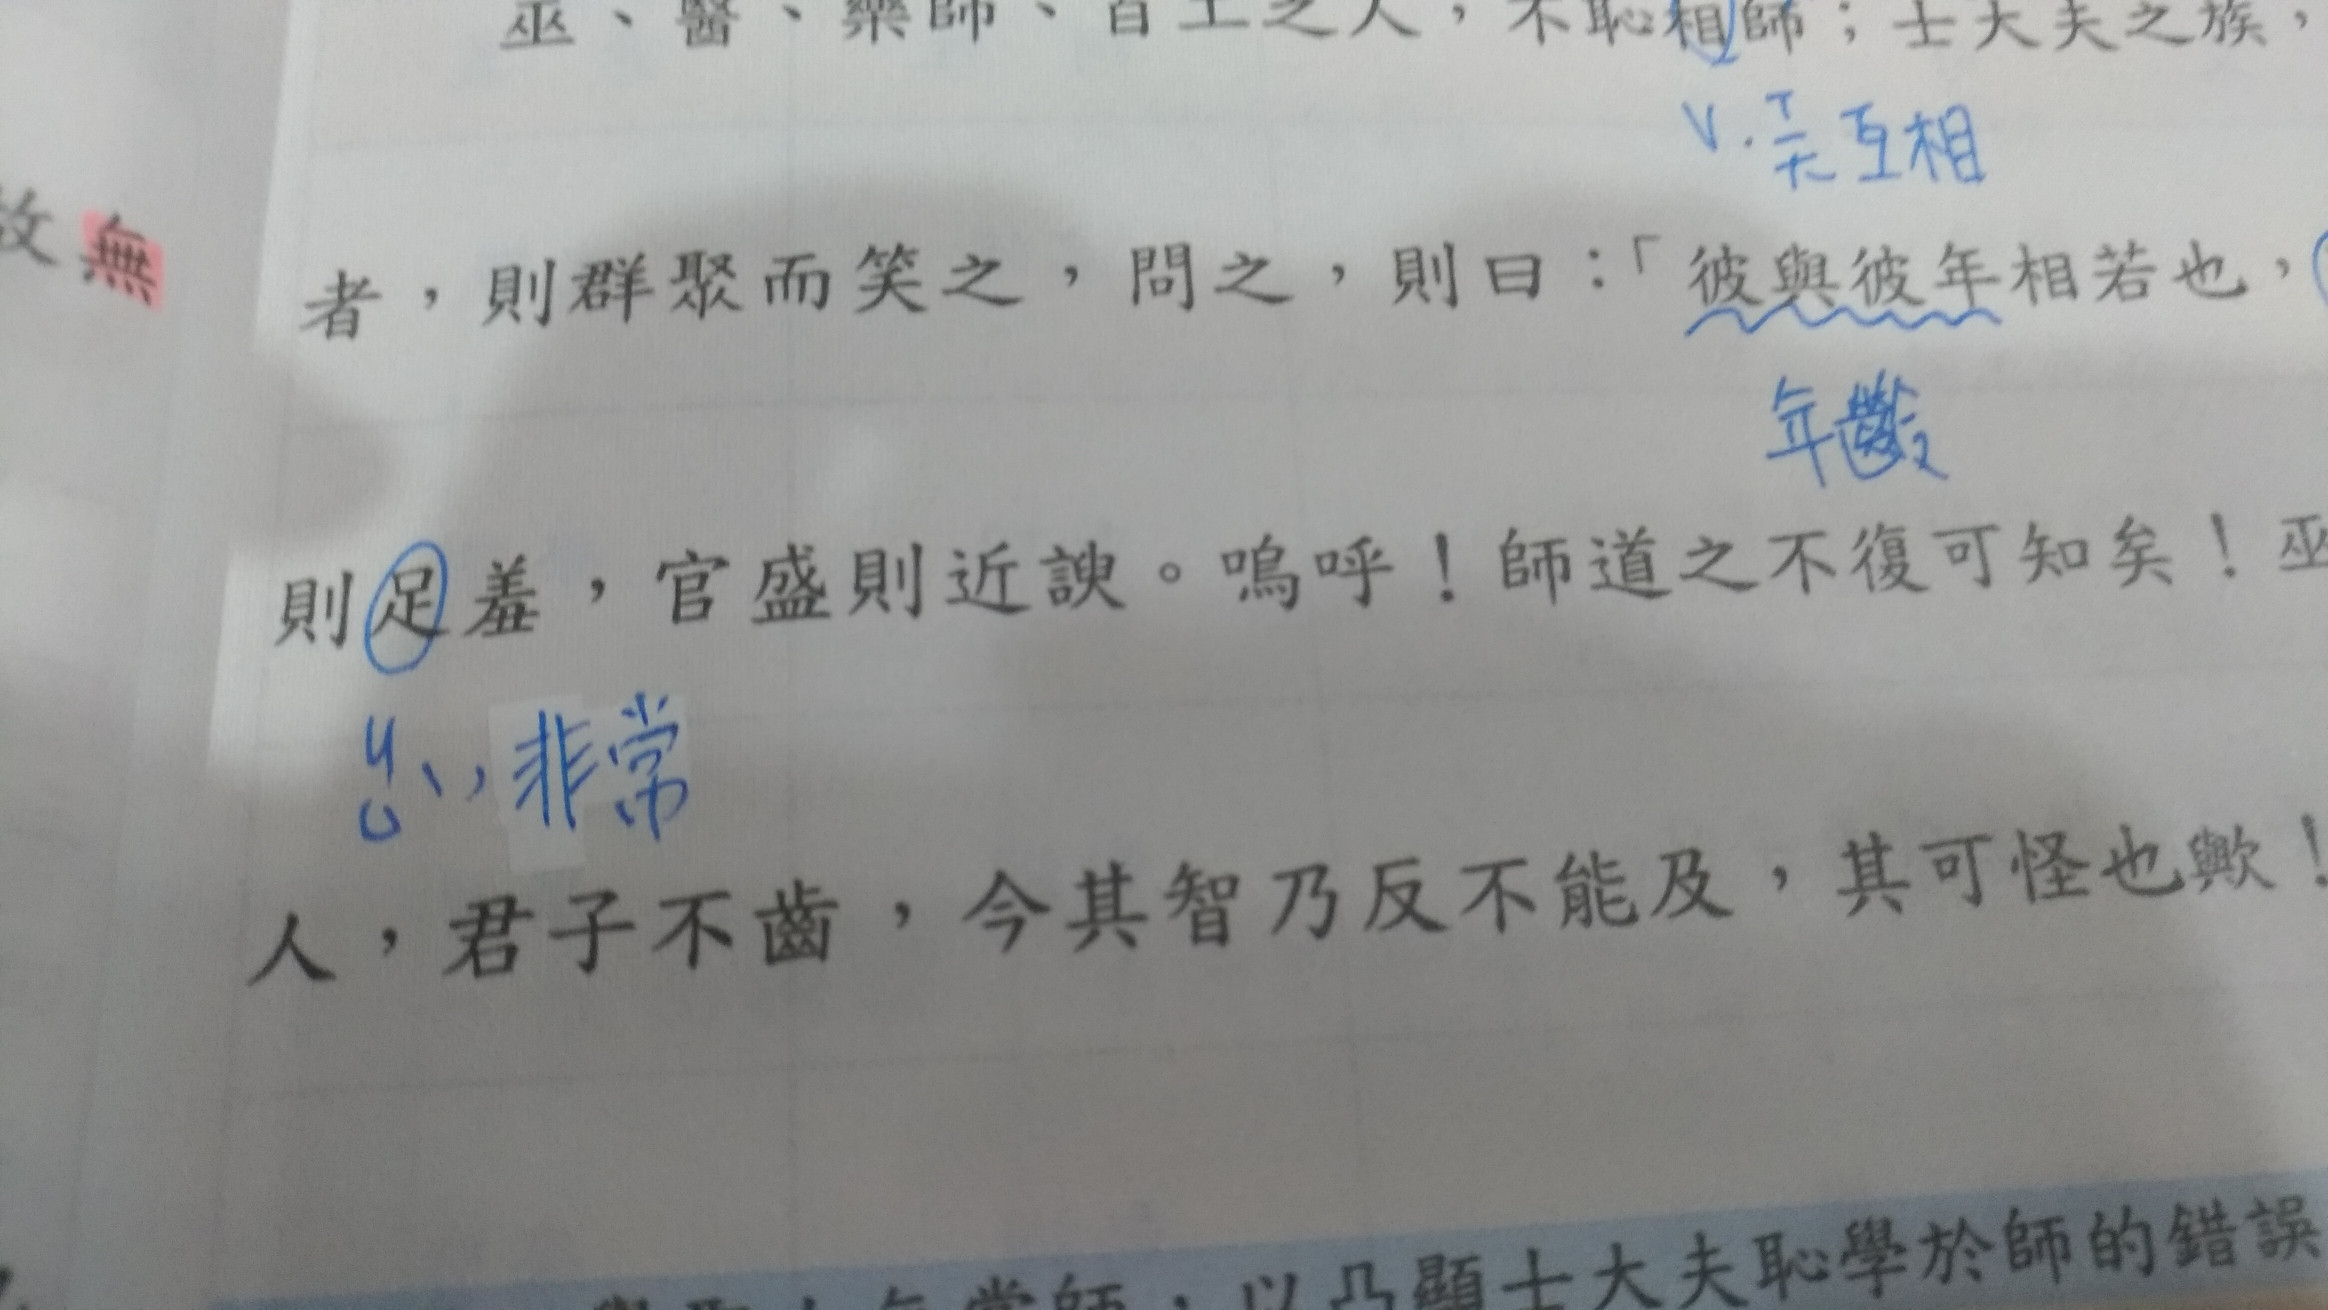 巫、醫、樂師、百工之人，不恥相師；士大夫之族，
V. 互相
故無
者，則群聚而笑之，問之，則曰：「彼與彼年相若也，
年歲
則足羞，官盛則近諛。嗚呼！師道之不復可知矣！巫
ㄐㄩˋ，非常
人，君子不齒，今其智乃反不能及，其可怪也歟！
師，以凸顯士大夫恥學於師的錯誤